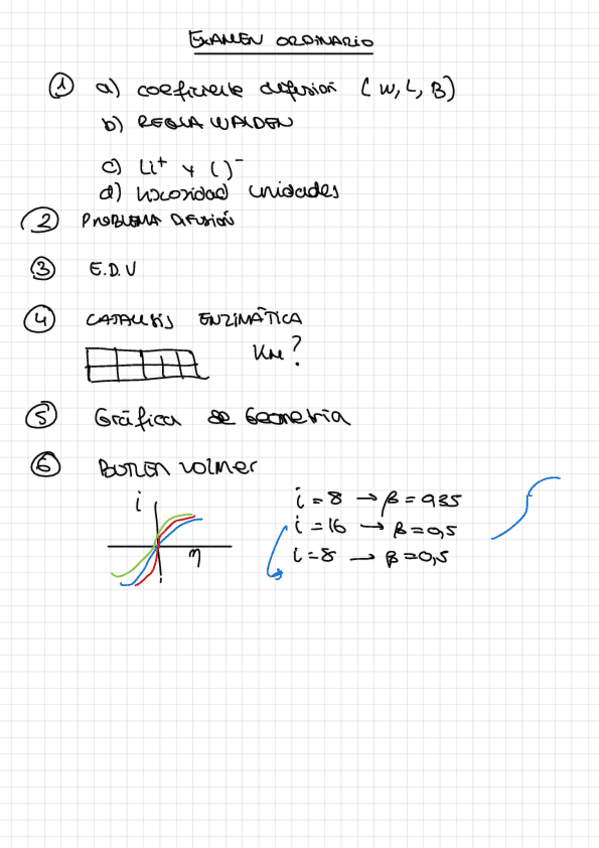 EXAMEN ORDINARIO
① a) coeficiente difusión (W, L, B)
b) REGLA WALDEN
c) Li⁺ y ( )⁻
d) Viscosidad unidades
② PROBLEMA DIFUSIÓN
③ E.D.V
④ CATALISIS ENZIMÁTICA
KM?
⑤ Gráfica de Geometria
⑥ BUTLER VOLMER
i
η
i = 8 → β = 0,35
i = 16 → β = 0,5
i = 8 → β = 0,5